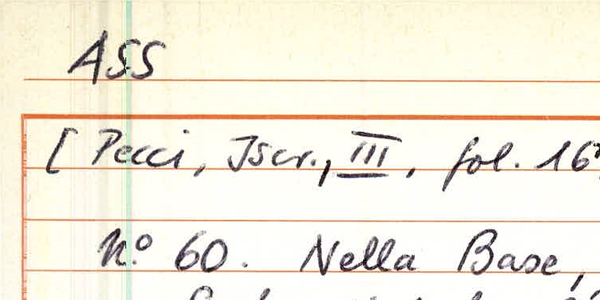 ASS
[ Pecci, Iscr., III, fol. 16
N.º 60. Nella Base,